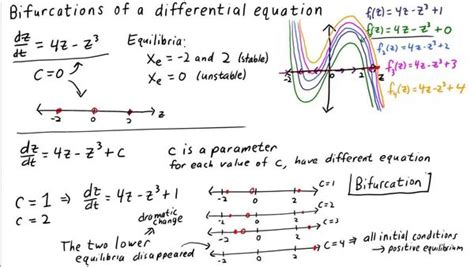 Bifurcations of a differential equation
dz/dt = 4z - z³
C=0
Equilibria:
Xe = -2 and 2 (stable)
Xe = 0 (unstable)
f₁(z) = 4z - z³ + 1
f(z) = 4z - z³ + 0
f₂(z) = 4z - z³ + 2
f₃(z) = 4z - z³ + 3
-2 0 2 z
dz/dt = 4z - z³ + C
C is a parameter
for each value of C, have different equation
C = 1 ⇒ dz/dt = 4z - z³ + 1
C = 2
dramatic
change
The two lower
equilibria disappeared
-2 0 2 C=1
-2 0 2 C=2
-2 0 2 C=3
-2 0 2 C=4 ⇒ all initial conditions
→ positive equilibrium
Bifurcation